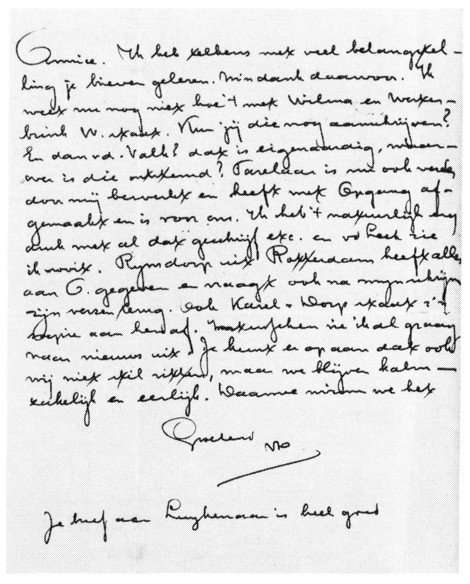 Amice. Ik heb telkens met veel belangstel-
ling je brieven gelezen. Mijn dank daarvoor. Ik
weet nu nog niet hoe 't met Wilma en
W. staat. Kun jij die nog aanschrijven?
En dan v.d. Valk? dat is eigenaardig, waar-
over is die ontstemd? is nu ook verder
door mij bewerkt en heeft met Opgang af-
gemaakt en is voor ons. Ik heb 't natuurlijk erg
druk met al dat geschrijf etc. en v. Heek zie
ik nooit. Rijnsdorp uit Rotterdam heeft alles
aan O. gegeven en vraagt ook na mijn schrijven
zijn verzen terug. Ook Karel v. Dorp staat z'n
copie aan ons af. Intusschen zie ik al graag
naar nieuws uit. Je kunt er op aan dat ook
wij niet stil zitten, maar we blijven kalm -
zakelijk en eerlijk. Daarmee winnen we het
Groetend
Je brief aan is heel goed